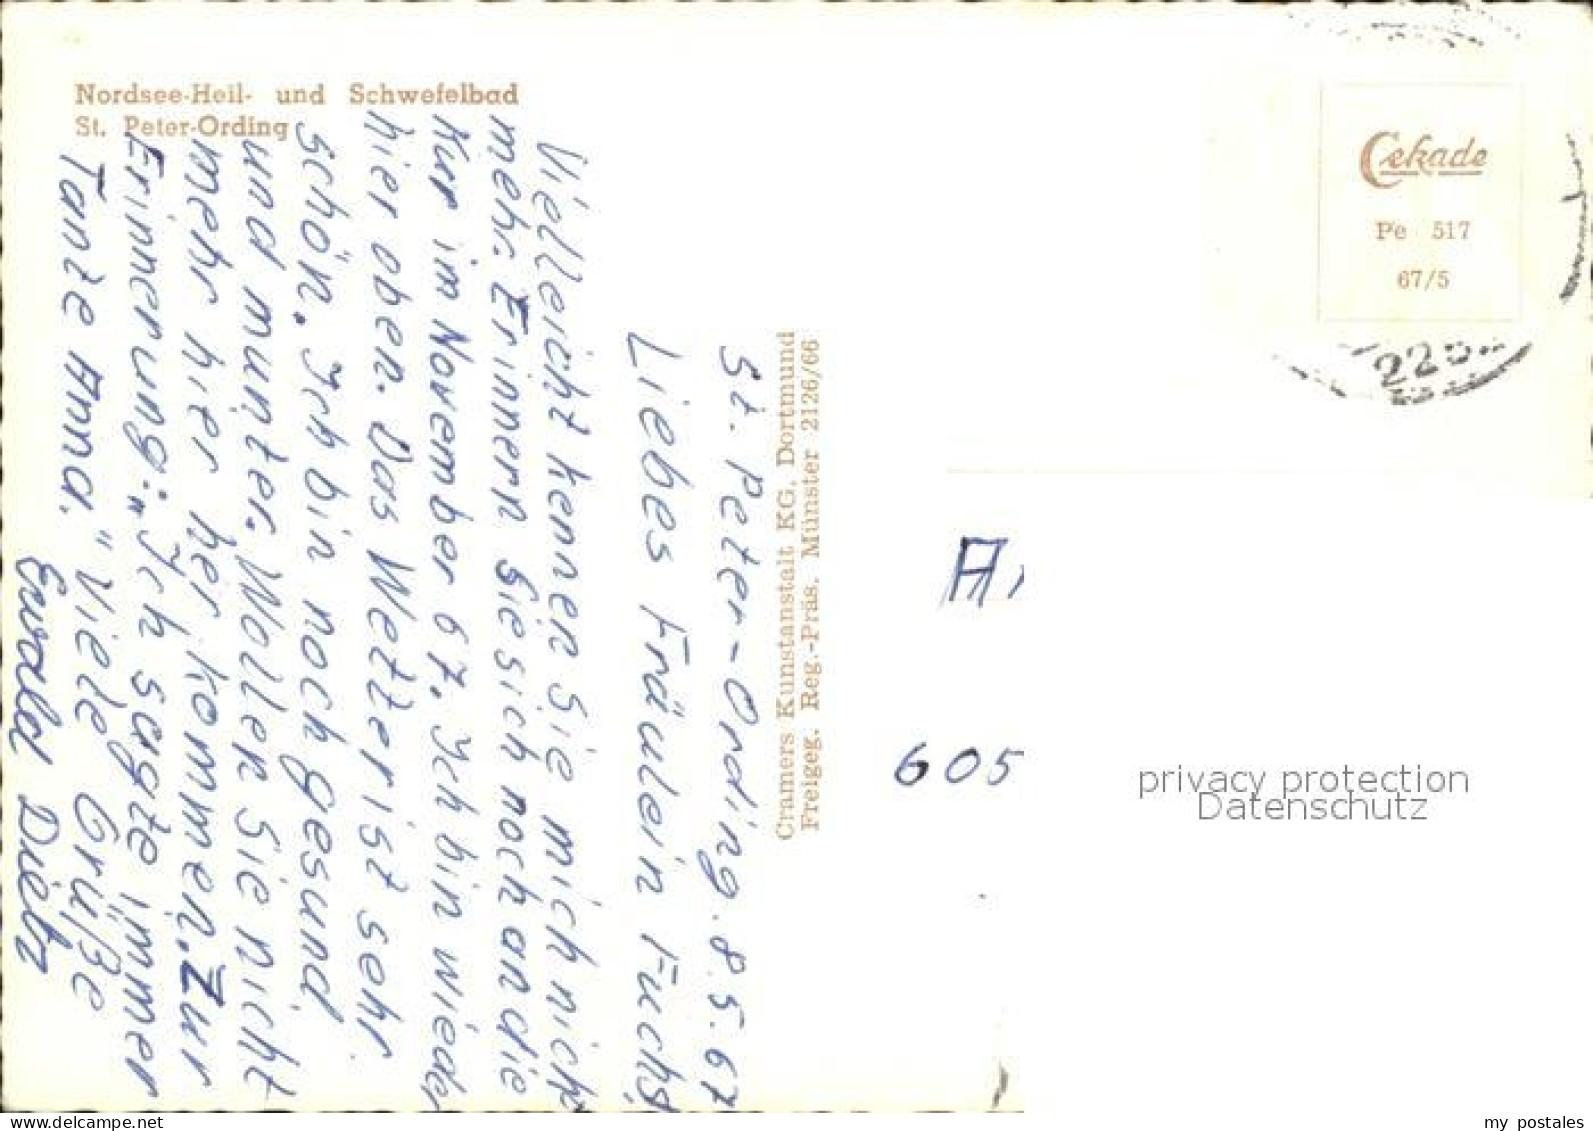 Nordsee-Heil- und Schwefelbad
St. Peter-Ording
St. Peter-Ording. 8.5.67
Liebes Fräulein Fuchs!
Vielleicht kennen Sie mich nicht
mehr. Erinnern Sie sich noch an die
Kur im November 67. Ich bin wieder
hier oben. Das Wetter ist sehr
schön. Ich bin noch gesund
und munter. Wollen Sie nicht
mehr hier her kommen. Zur
Erinnerung: „Ich sagte immer
Tanze Anna." Viele Grüße
Ewald Dietz
Cramers Kunstanstalt KG, Dortmund
Freigeg. Reg.-Präs. Münster 2126/66
Cekade
Pe 517
67/5
605
privacy protection
Datenschutz
my postales